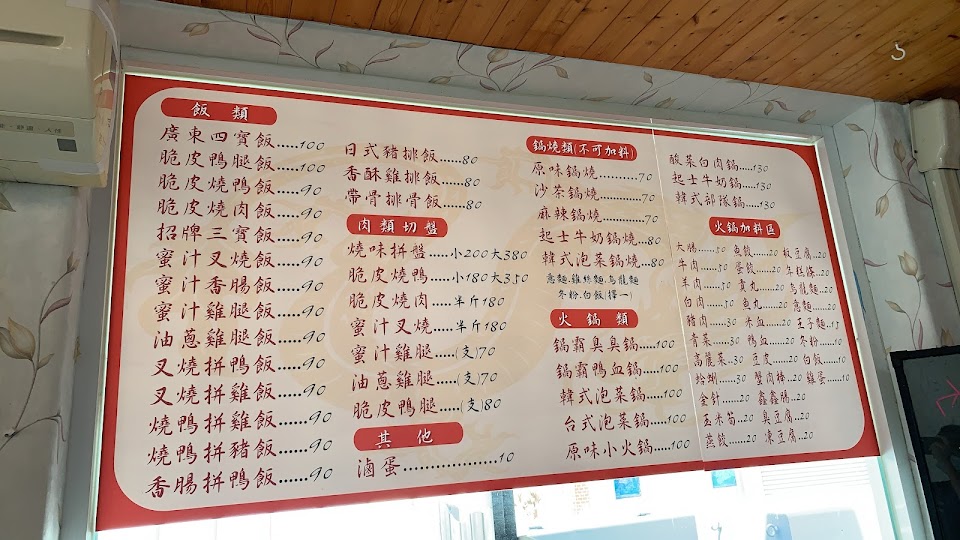 飯類
廣東四寶飯.....100
脆皮鴨腿飯.....100
脆皮燒鴨飯.....90
脆皮燒肉飯.....90
招牌三寶飯.....90
蜜汁叉燒飯.....90
蜜汁香腸飯.....90
蜜汁雞腿飯.....90
油蔥雞腿飯.....90
叉燒拼鴨飯.....90
叉燒拼雞飯.....90
燒鴨拼雞飯.....90
燒鴨拼豬飯.....90
香腸拼鴨飯.....90
日式豬排飯.....80
香酥雞排飯.....80
帶骨排骨飯.....80
肉類切盤
燒味拼盤....小200大380
脆皮燒鴨....小180大350
脆皮燒肉....半斤180
蜜汁叉燒....半斤180
蜜汁雞腿....(支)70
油蔥雞腿....(支)70
脆皮鴨腿....(支)80
其他
滷蛋..................10
鍋燒類(不可加料)
原味鍋燒.........70
沙茶鍋燒.........70
麻辣鍋燒.........70
起士牛奶鍋燒...80
韓式泡菜鍋燒...80
意麵.雞絲麵.烏龍麵
冬粉.白飯(擇一)
火鍋類
鍋霸臭臭鍋.....100
鍋霸鴨血鍋.....100
韓式泡菜鍋.....100
台式泡菜鍋.....100
原味小火鍋.....100
酸菜白肉鍋....130
起士牛奶鍋....130
韓式部隊鍋....130
火鍋加料區
大腸.....50 魚餃.....20 板豆腐..20
牛肉.....50 蛋餃.....20 年糕條..20
羊肉.....50 貢丸.....20 烏龍麵..20
白肉.....50 魚丸.....20 意麵.....20
豬肉.....30 米血.....20 王子麵..15
青菜.....30 鴨血.....20 冬粉.....10
高麗菜...30 豆皮.....20 白飯.....10
蛤蜊.....30 蟹肉棒..20 雞蛋.....10
金針.....20 鑫鑫腸..20
玉米筍...20 臭豆腐..20
燕餃.....20 凍豆腐..20